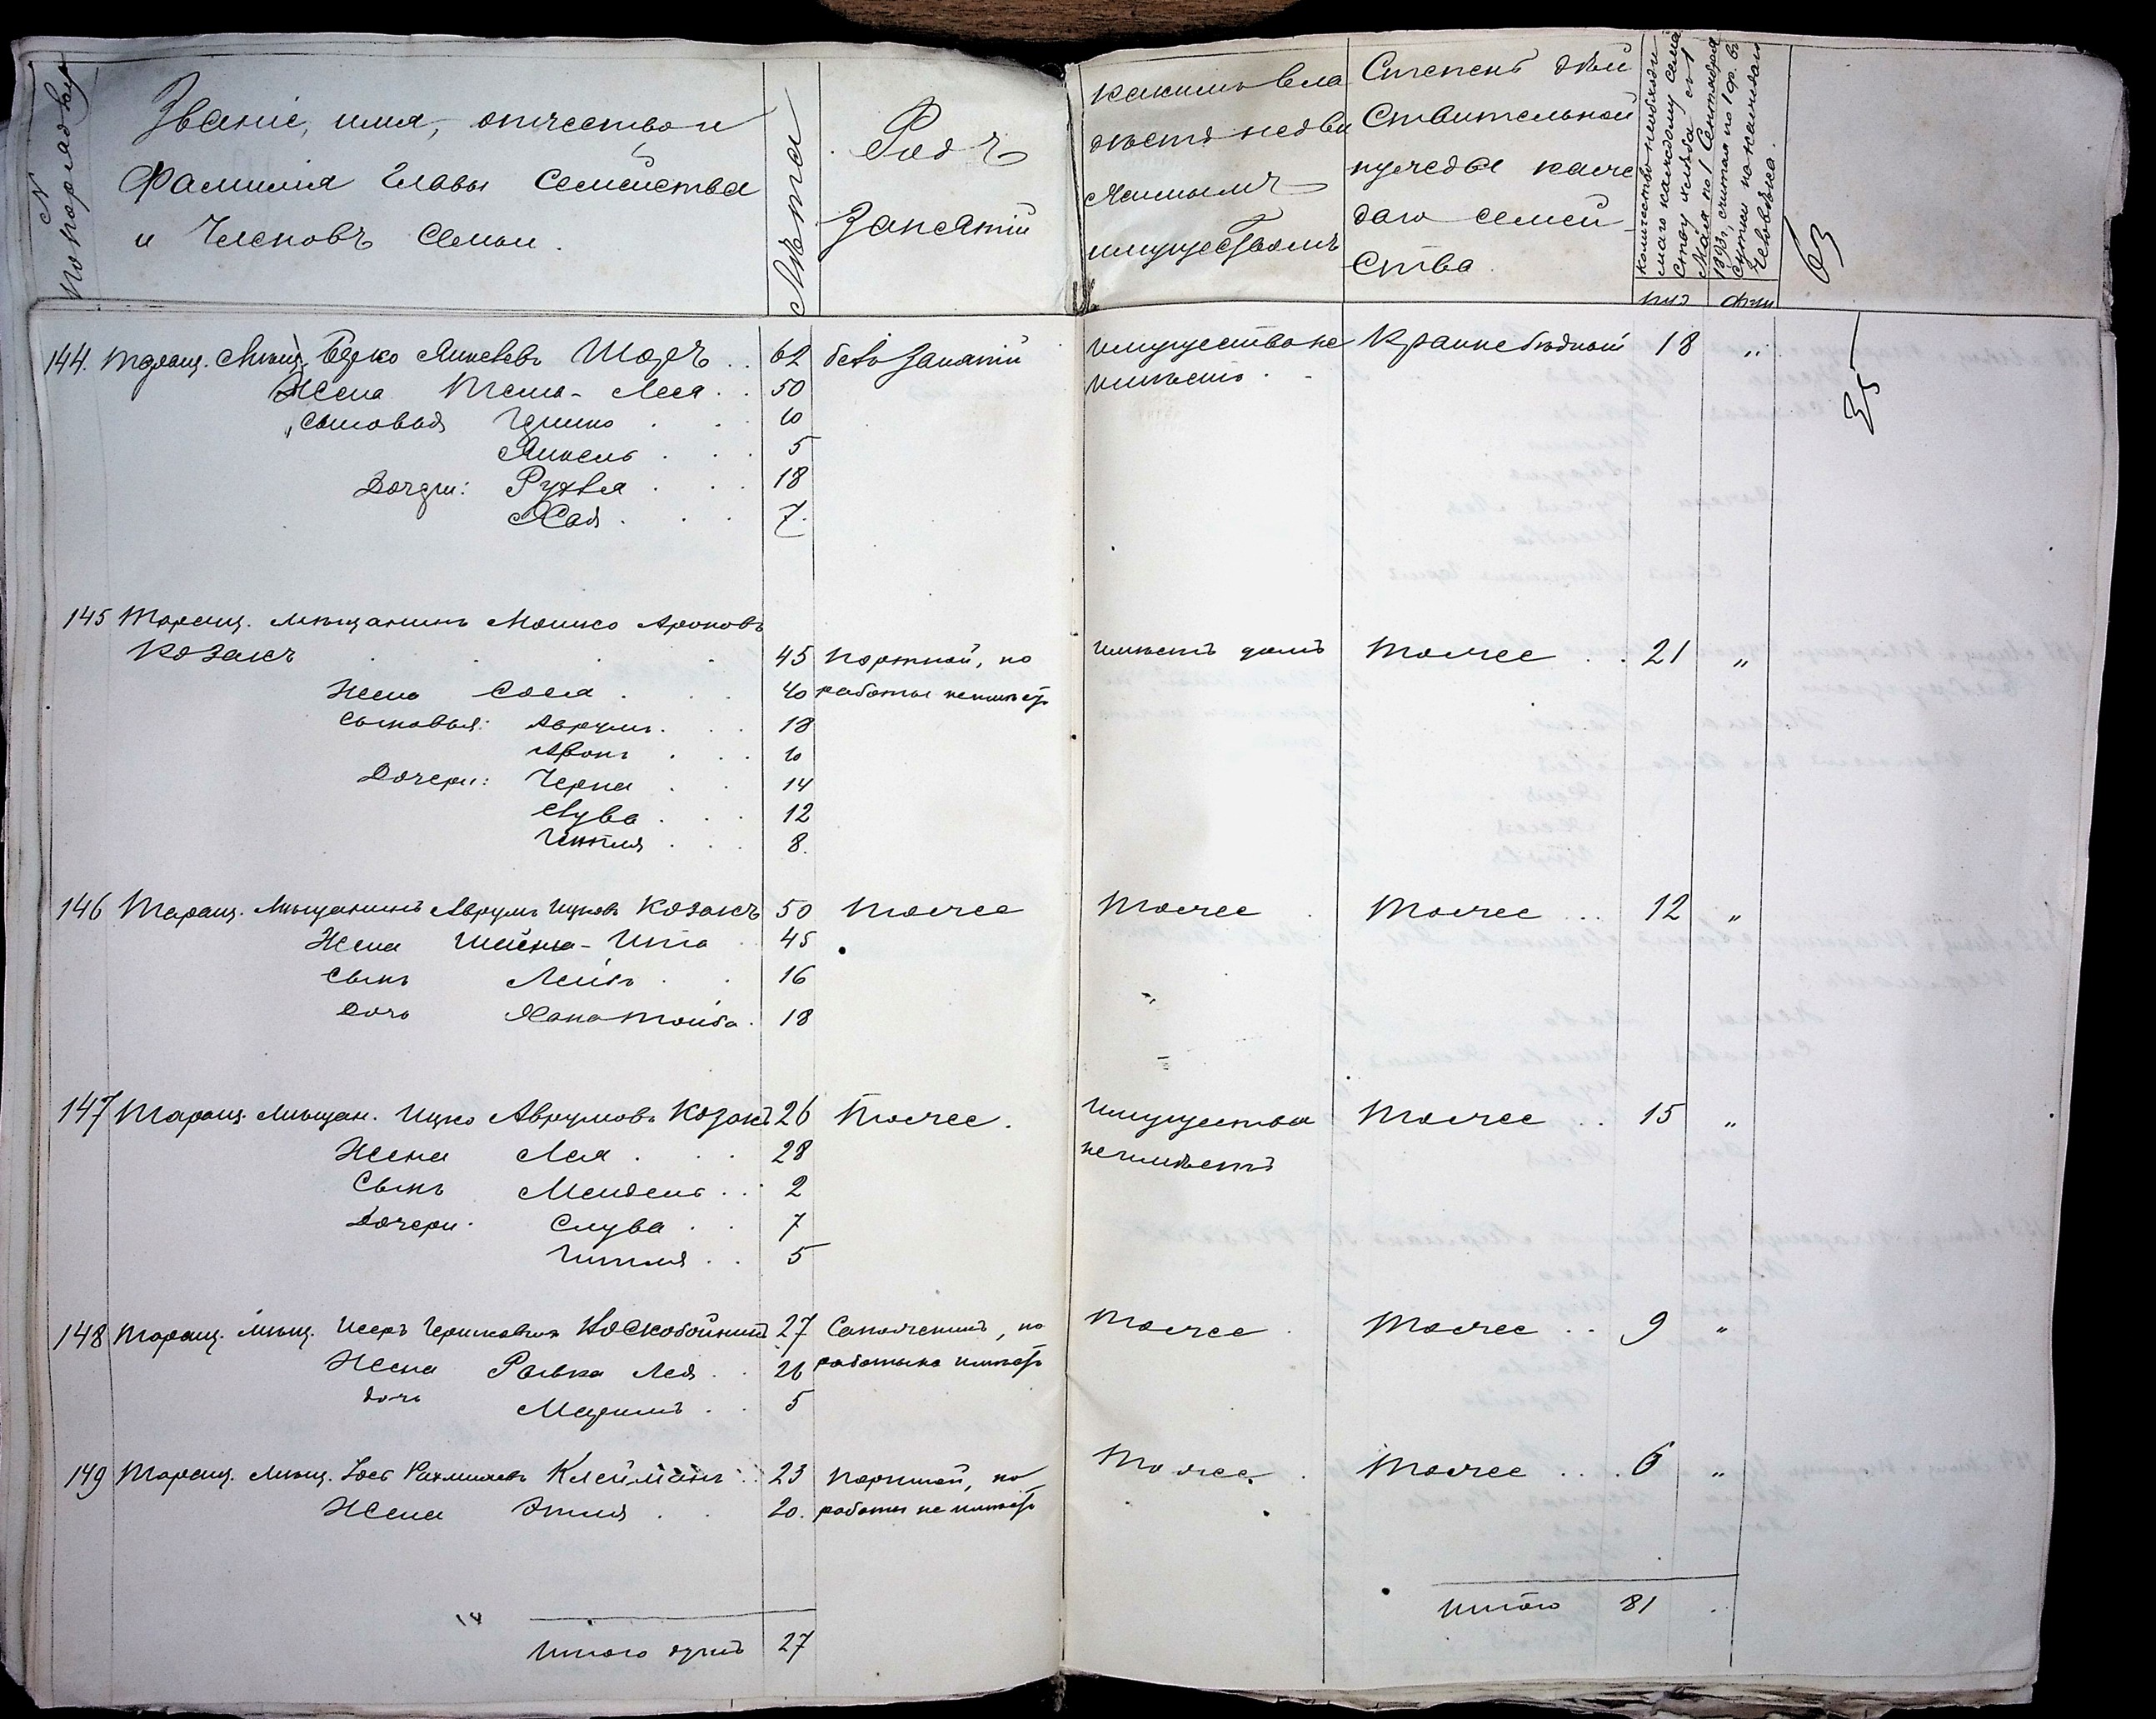 № по порядку
Званіе, имя, отчество и
фамилія главы семейства
и членовъ семьи.
Лѣта
Родъ
занятій
какимъ вла
дѣетъ недви
жимымъ
имуществомъ
Степень дѣй
ствительной
нужды каж
даго семей
ства.
количество необходи
маго каждому семей
ству хлѣба съ 1
Мая по 1 Сентября
189 г., считая по 1 ф. въ
сутки на каждаго
человѣка.
пуд фун
63
35
144. Таращ. мѣщ. Берко Янкелевъ Шоръ . . 62 безъ занятій имущества не Крайне бѣдной 18 "
Жена Тема-Лея . . 50 имѣетъ .
Сыновья Гершко . . 10
Янкель . . 5
Дочери: Рухля . . 18
Хая . . 7.
145 Таращ. мѣщанинъ Мошко Ароновъ
Козакъ . . . 45 портной, но имѣетъ домъ Тоже . . 21 "
Жена Сося . . 40 работы не имѣетъ
Сыновья: Аврумъ . . 18
Аронъ . . 10
Дочери: Черна . . 14
Слува . . 12
Гитля . . 8.
146 Таращ. мѣщанинъ Аврумъ Ицковъ Козакъ 50 Тоже Тоже . Тоже . . . 12 "
Жена Шейна-Ита . 45
Сынъ Лейбъ . . 16
Дочь Хана Тойба . 18
147 Таращ. мѣщан. Ицко Аврумовъ Козакъ 26 Тоже . Имущества Тоже . . 15 "
Жена Лея . . 28 не имѣетъ
Сынъ Мендель . . 2
Дочери . Слува . . 7
Гитля . . 5
148 Таращ. мѣщ. Исеръ Гершковичъ Воскобойникъ 27 Сапожникъ, но Тоже . Тоже . . 9 "
Жена Ривка Лея . . 26 работы не имѣетъ
дочь Маріимъ . . 5
149 Таращ. мѣщ. Іосъ Рахмилевъ Клейманъ . . 23 портной, но Тоже . Тоже . . . 6 "
Жена Этля . . 20. работы не имѣетъ
Итого душъ 27
Итого 81 .